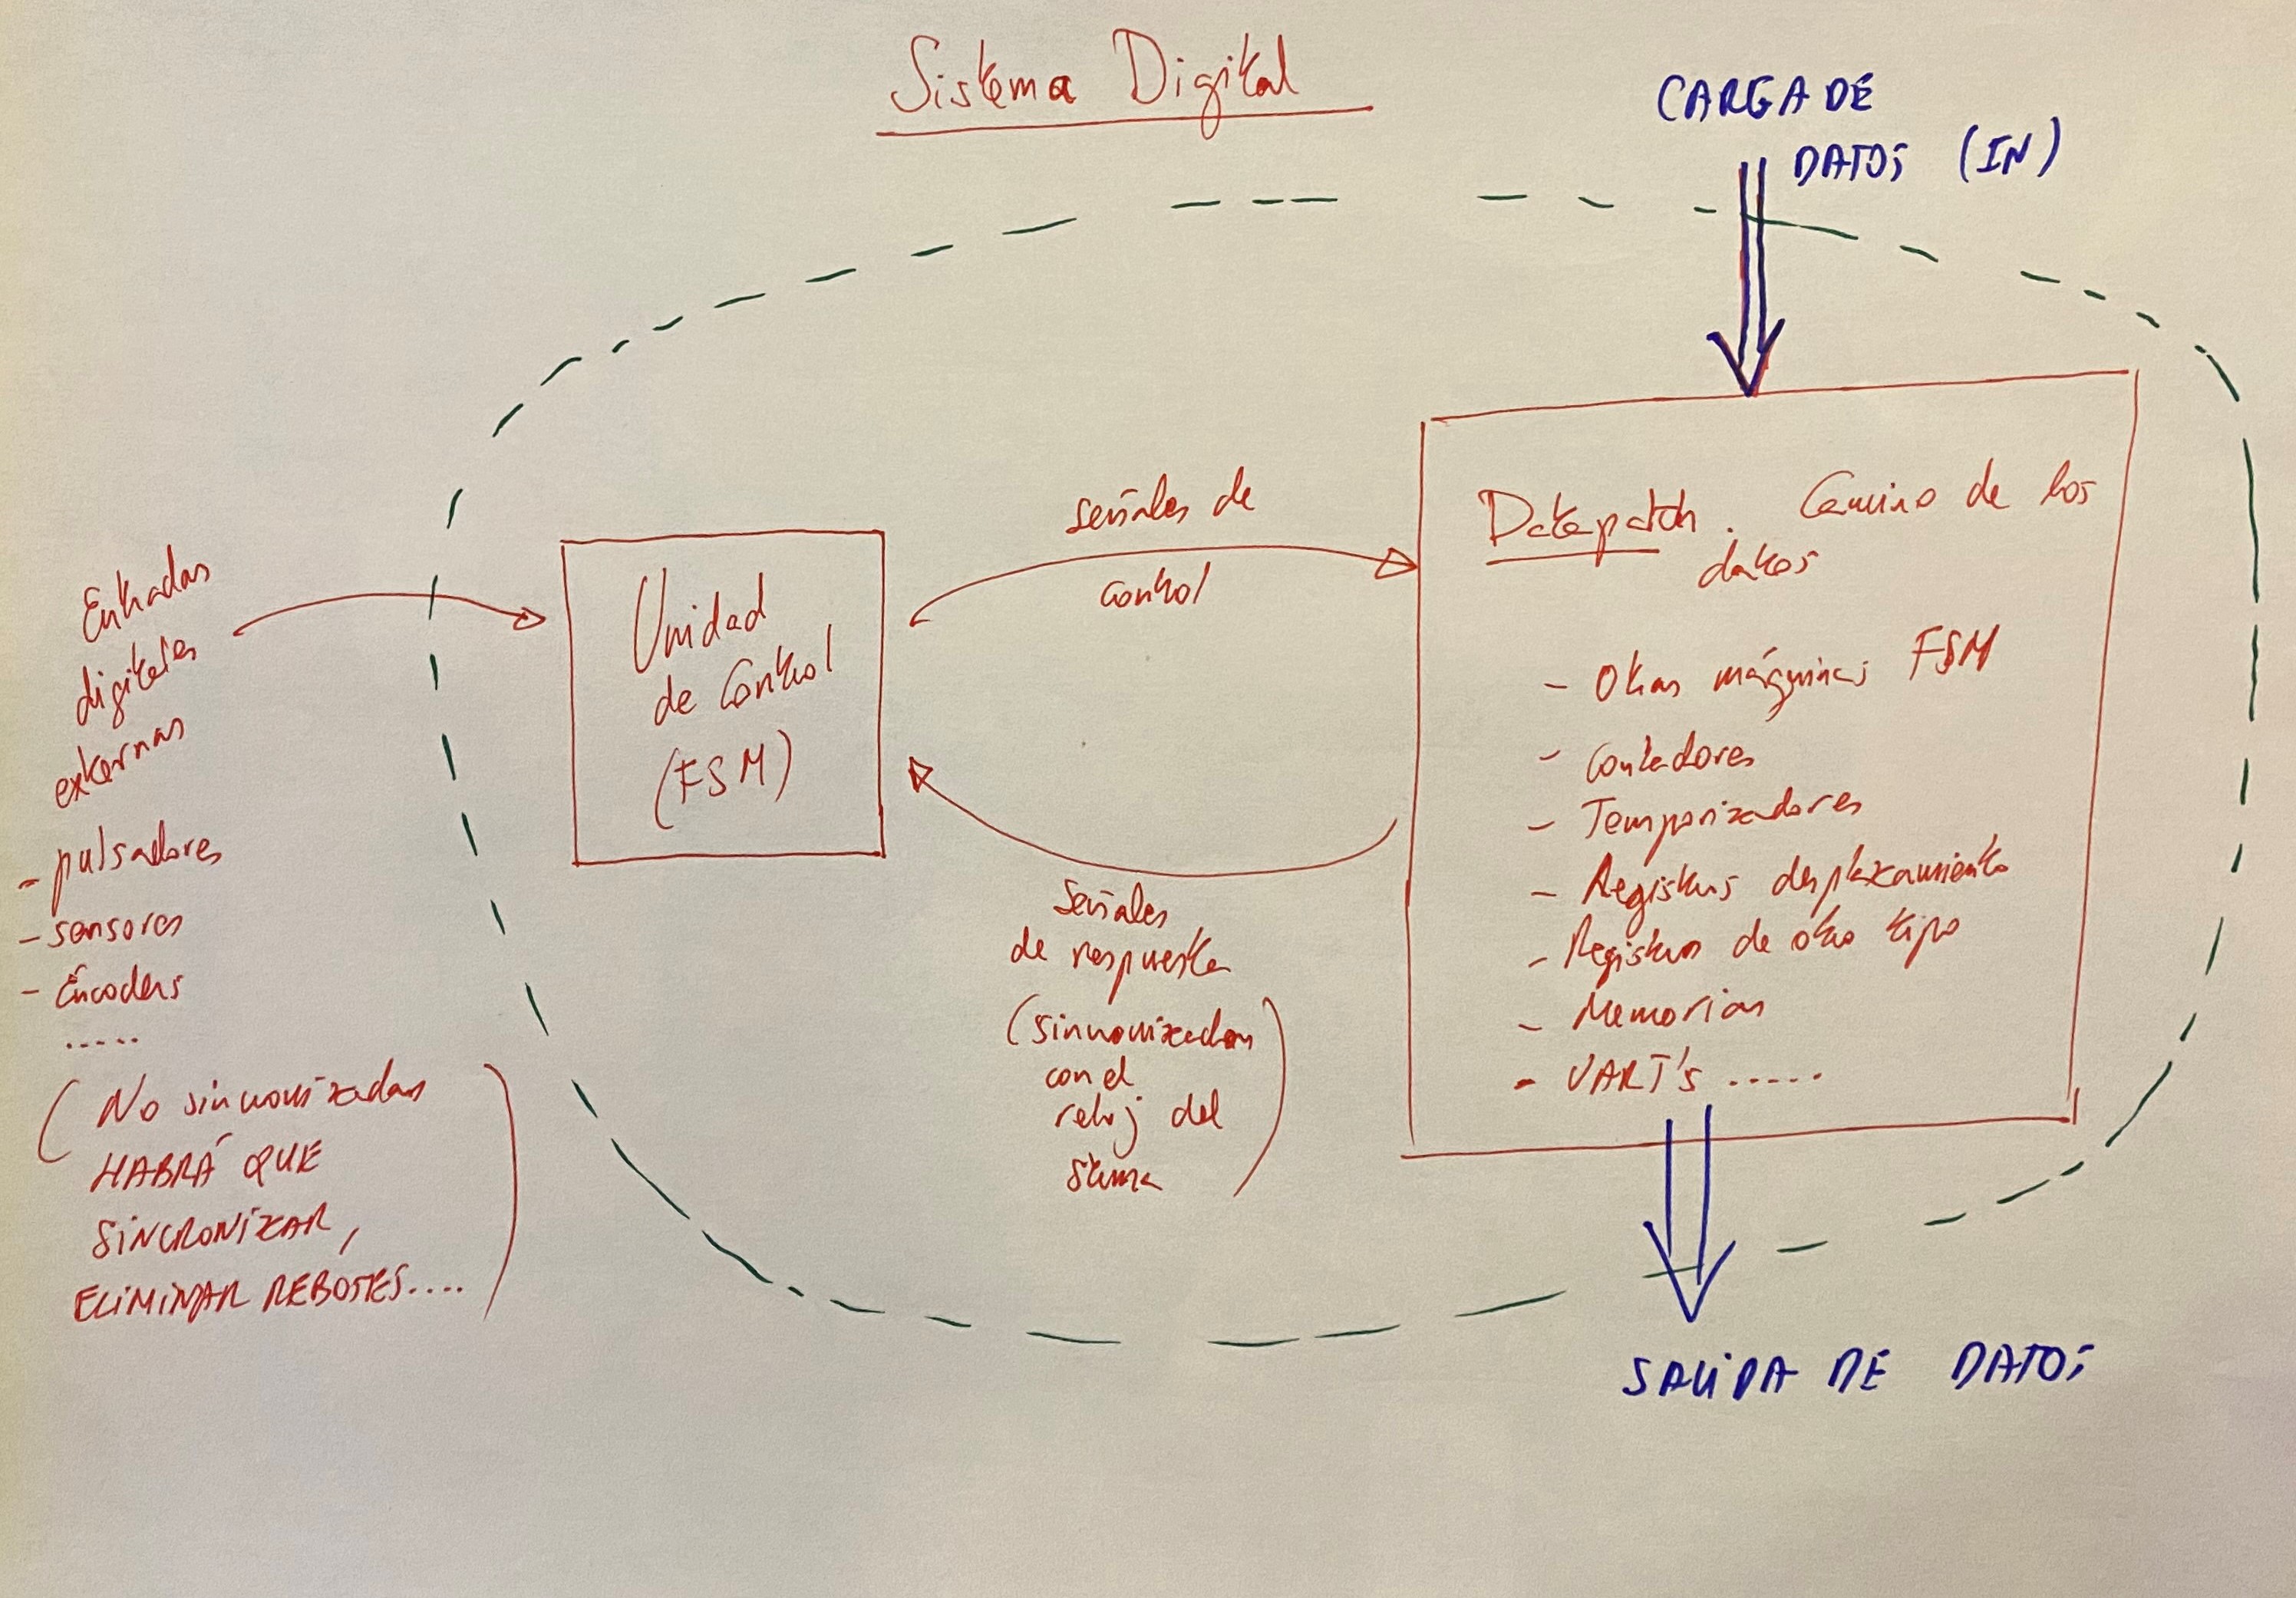 Sistema Digital
CARGA DE
DATOS (IN)
Entradas
digitales
externas
- pulsadores
- sensores
- Encoders
.....
( No sincronizadas
HABRÁ QUE
SINCRONIZAR,
ELIMINAR REBOTES.... )
Unidad
de Control
(FSM)
señales de
control
Señales
de respuesta
(sincronizadas
con el
reloj del
stema )
Datapatch. Camino de los
datos
- Otras máquinas FSM
- Contadores
- Temporizadores
- Registros desplazamiento
- Registros de otro tipo
- Memorias
- UART's .....
SALIDA DE DATOS